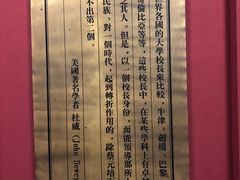 界各國的大學校長來比較，牛津、劍橋、巴黎、
倫比亞等等，這些校長中，在某些學科上有卓
之其人，但是，以一個校長身份，而能領導那所
民族、對一個時代，起到轉折作用的，除蔡元培
不出第二個。
美國著名學者 杜威（John Dewe